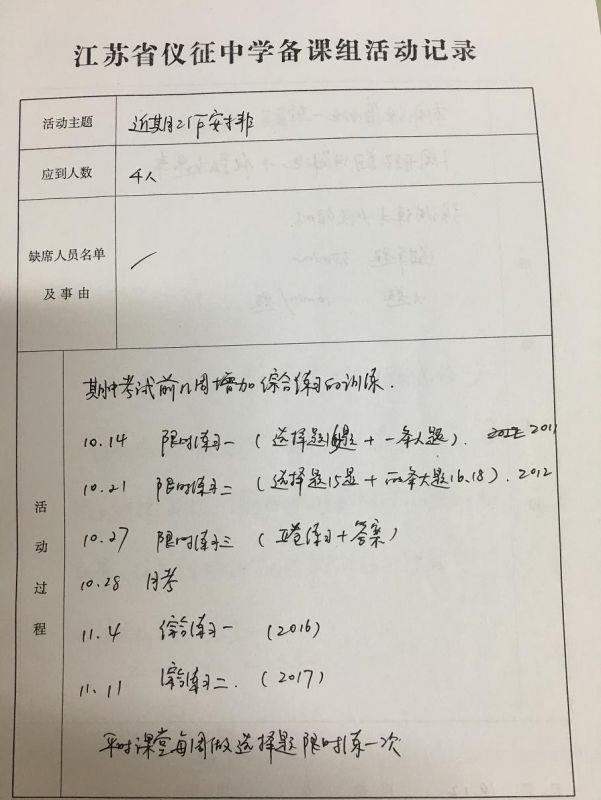 江苏省仪征中学备课组活动记录
活动主题 近期工作安排
应到人数 4人
缺席人员名单
及事由 /
活动过程
期中考试前几周增加综合练习的训练.
10.14 限时练习一 (选择题题 + 一条大题). 2011
10.21 限时练习二 (选择题15题 + 两条大题16.18). 2012
10.27 限时练习三 (卷练习 + 答案)
10.28 月考
11.4 综合练习一 (2016)
11.11 综合练习二. (2017)
平时课堂每周做选择题限时练一次